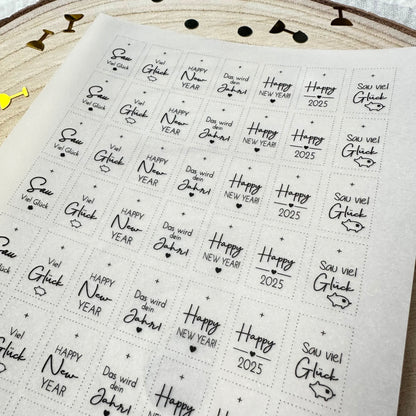 Sau
Viel Glück
Viel
Glück
HAPPY
New
YEAR
Das wird
dein
Jahr!
Happy
NEW YEAR!
Happy
2025
Sau viel
Glück
Sau
Viel Glück
Viel
Glück
HAPPY
New
YEAR
Das wird
dein
Jahr!
Happy
NEW YEAR!
Happy
2025
Sau viel
Glück
Sau
Viel Glück
Viel
Glück
HAPPY
New
YEAR
Das wird
dein
Jahr!
Happy
NEW YEAR!
Happy
2025
Sau viel
Glück
Sau
Viel Glück
Viel
Glück
HAPPY
New
YEAR
Das wird
dein
Jahr!
Happy
NEW YEAR!
Happy
2025
Sau viel
Glück
Glück
Viel
Glück
HAPPY
New
YEAR
Das wird
dein
Jahr!
Happy
NEW YEAR!
Happy
2025
Sau viel
Glück
Viel
Glück
HAPPY
New
YEAR
Das wird
dein
Jahr!
Happy